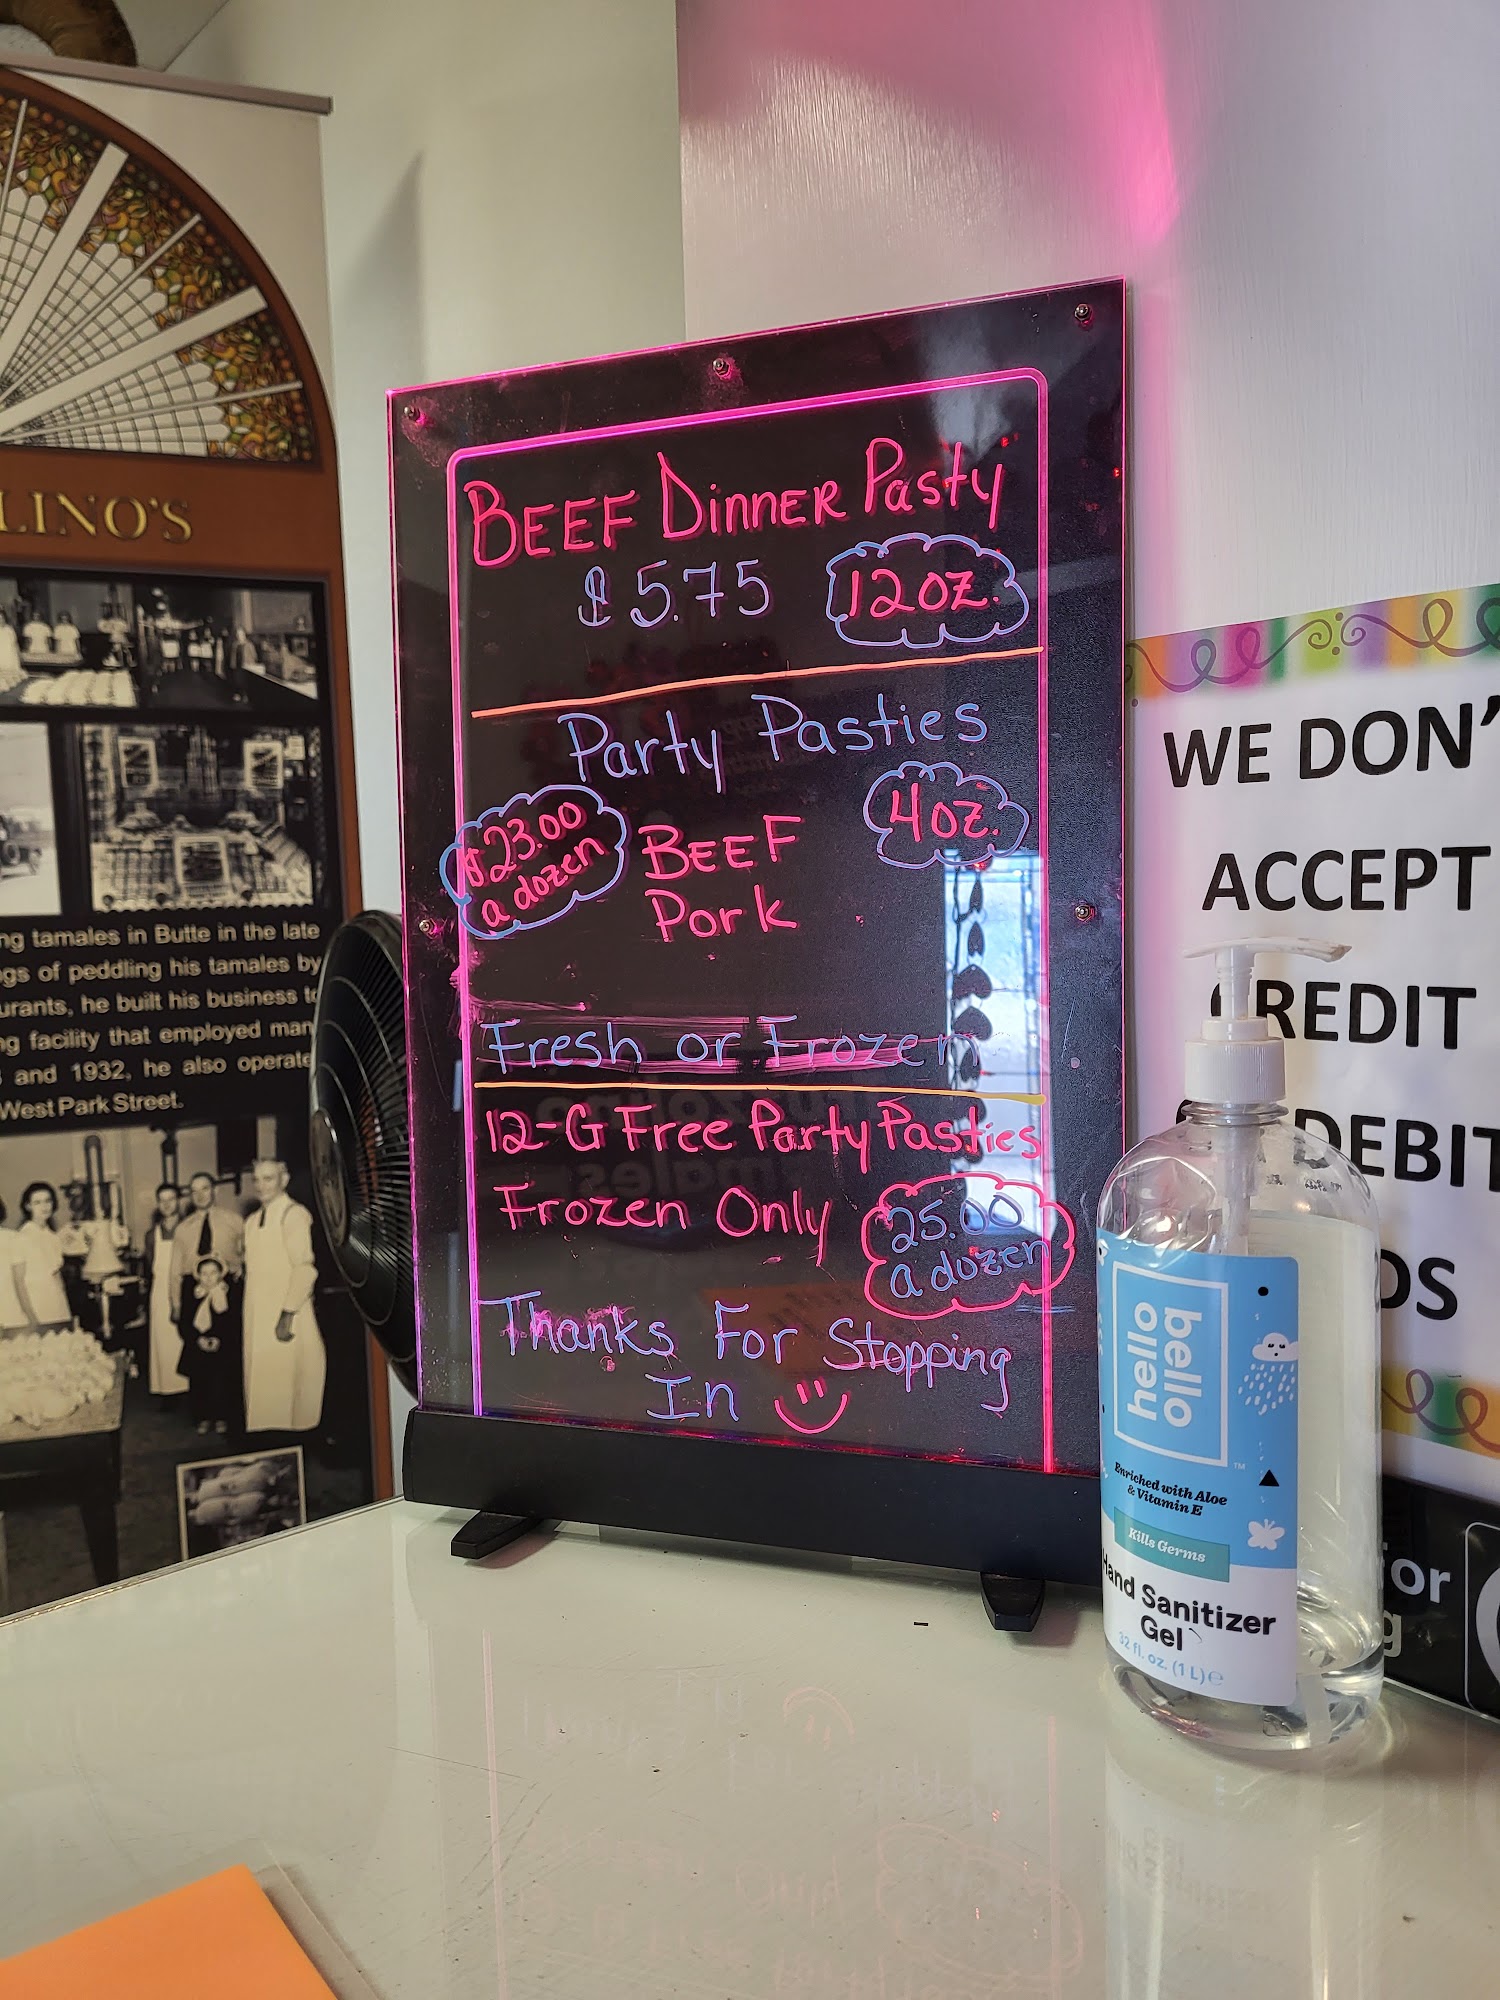 LINO'S
ng tamales in Butte in the late
ngs of peddling his tamales by
urants, he built his business to
ng facility that employed man
and 1932, he also operate
West Park Street.
BEEF DINNER PASTY
$5.75
12 oz.
Party Pasties
$23.00
a dozen
4 oz.
BEEF
Pork
Fresh or Frozen
12-G Free Party Pasties
Frozen Only
25.00
a dozen
Thanks For Stopping
In
WE DON'
ACCEPT
CREDIT
DEBIT
DS
hello
hello
Enriched with Aloe
& Vitamin E
Kills Germs
Hand Sanitizer
Gel
32 fl. oz. (1 L) e
for